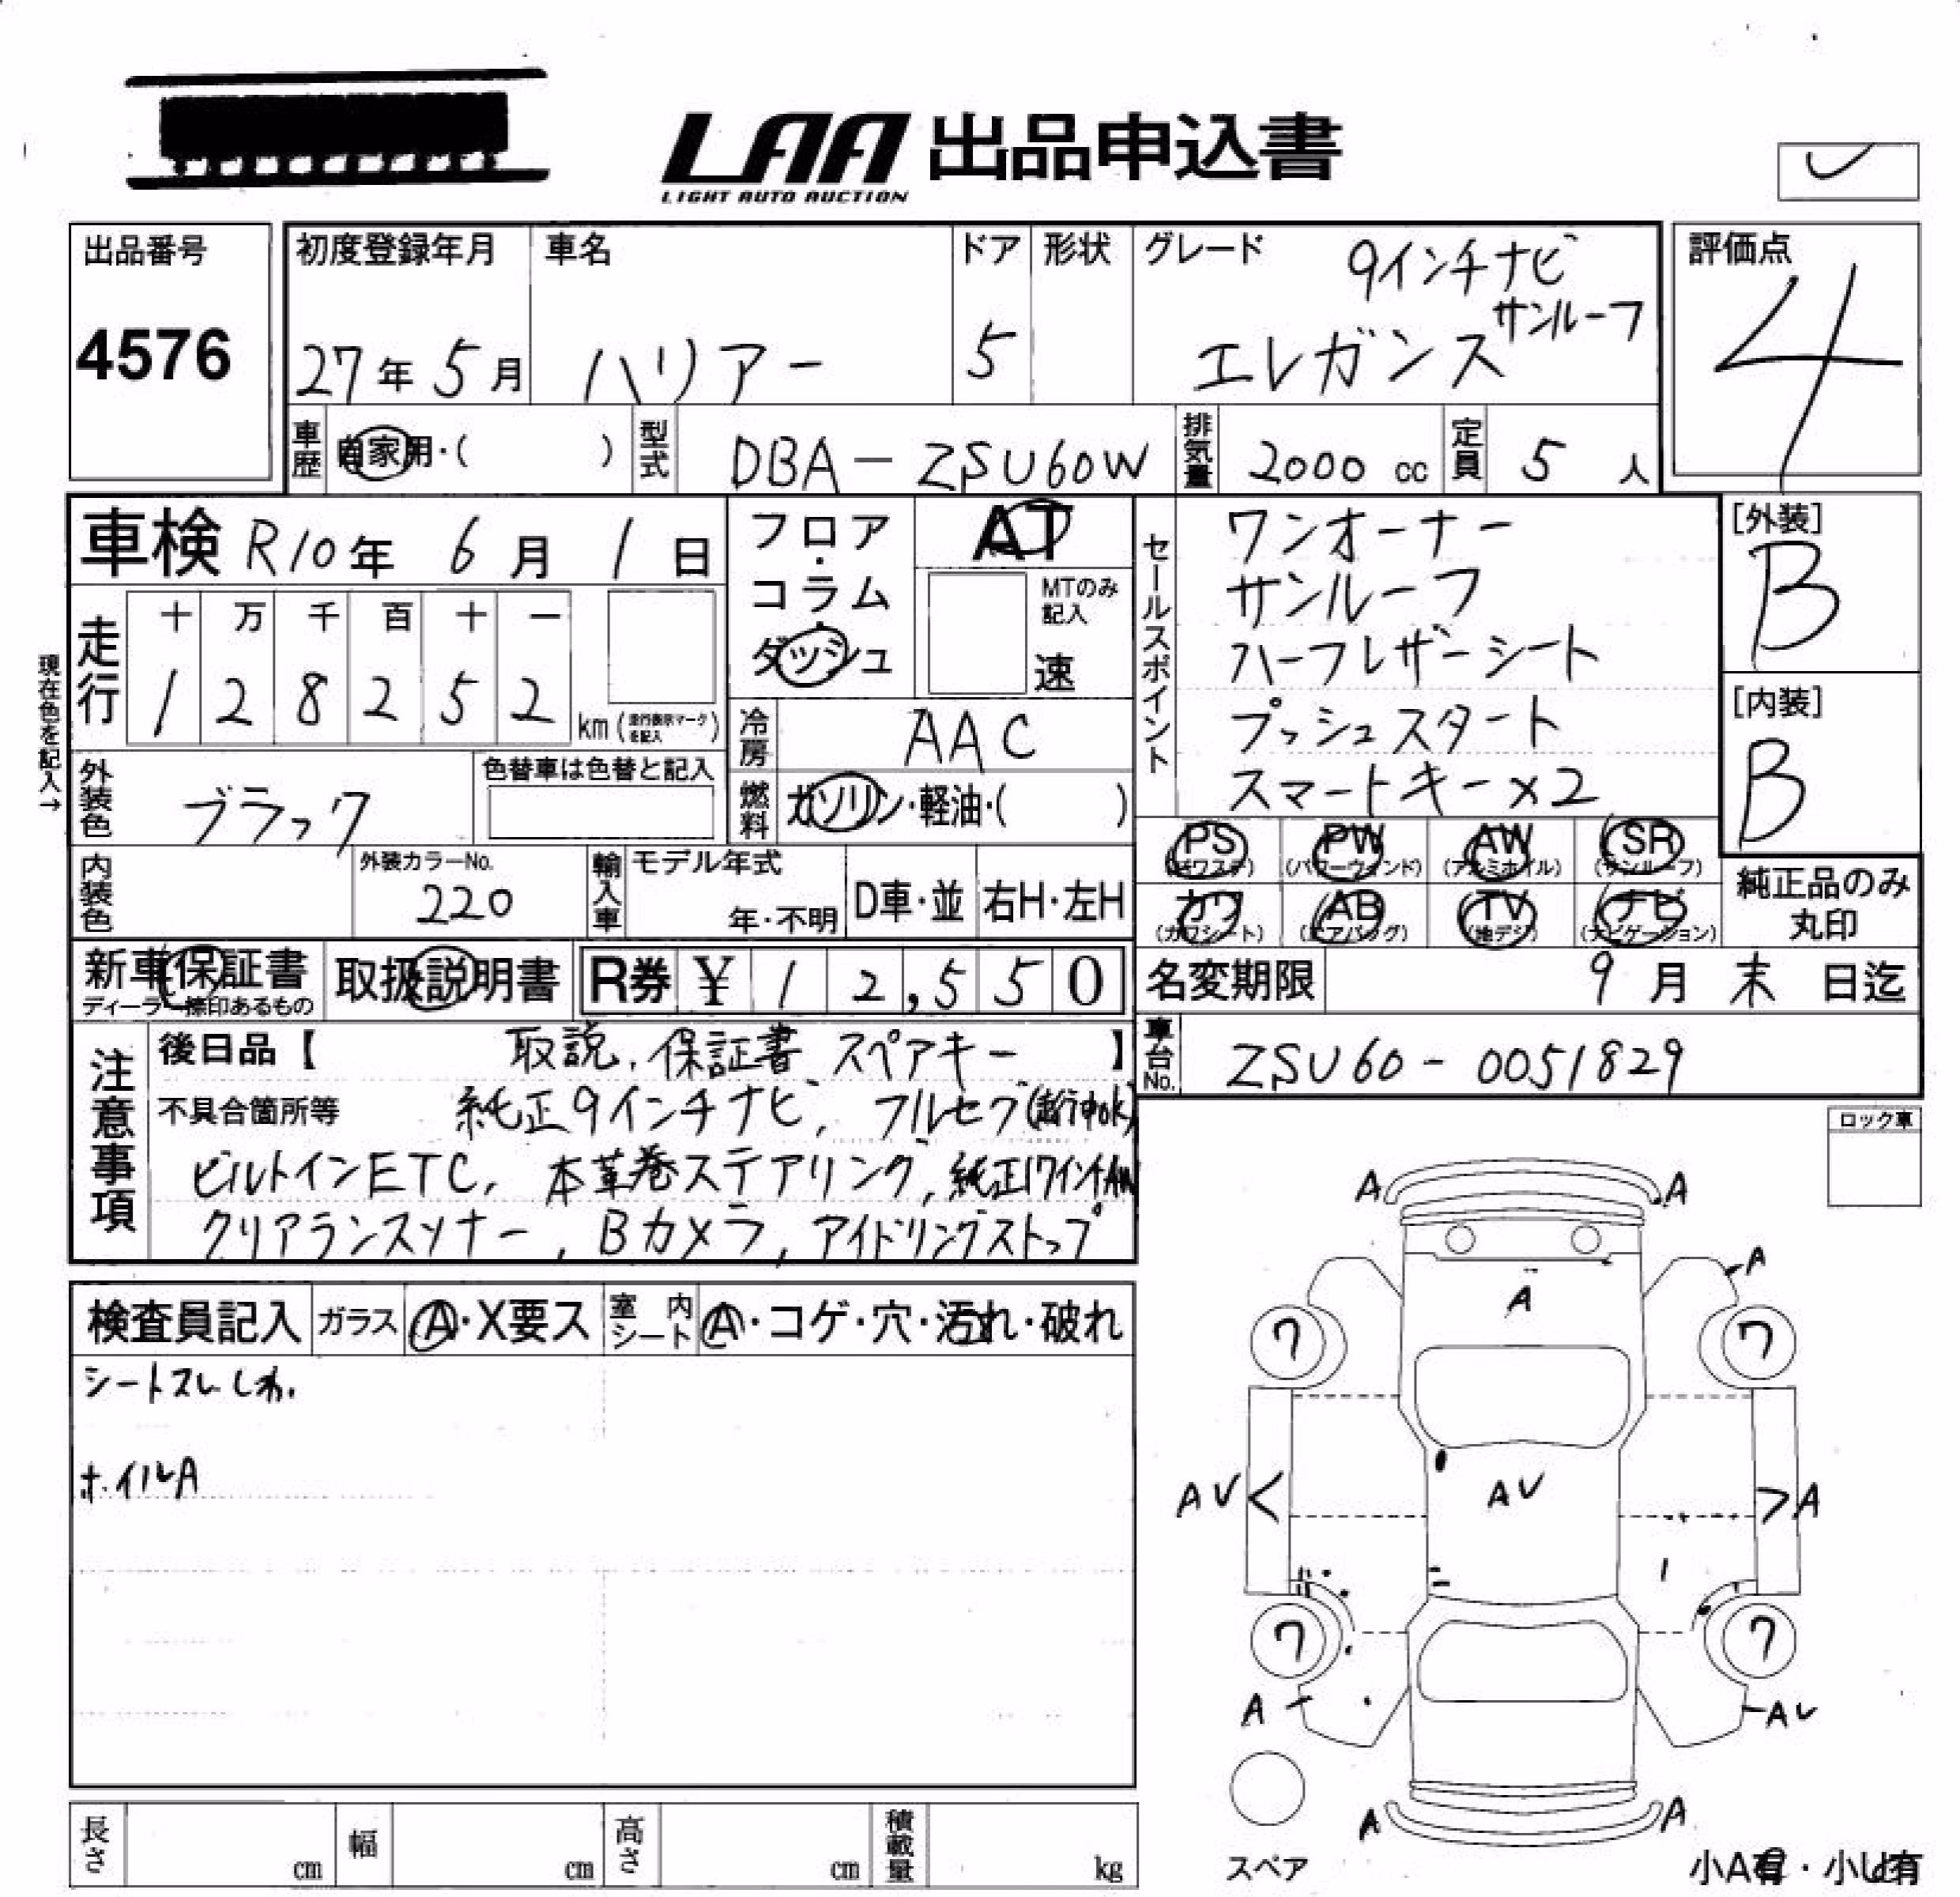 LAA 出品申込書
LIGHT AUTO AUCTION
出品番号
4576
初度登録年月
27年 5月
車名
ハリアー
ドア
5
形状
グレード
9インチナビ
サンルーフ
エレガンス
評価点
4
車歴
自家用・( )
型式
DBA-ZSU60W
排気量
2000 cc
定員
5 人
車検 R10年 6月 1日
走行
十 万 千 百 十 一
1 2 8 2 5 2
km (走行表示マークを記入)
現在色を記入→
外装色
ブラック
色替車は色替と記入
内装色
外装カラーNo.
220
フロア・コラム・ダッシュ
AT
MTのみ記入
速
冷房
AAC
燃料
ガソリン・軽油・( )
輸入車
モデル年式
年・不明
D車・並
右H・左H
セールスポイント
ワンオーナー
サンルーフ
ハーフレザーシート
プッシュスタート
スマートキー×2
[外装]
B
[内装]
B
PS (パワステ)
PW (パワーウィンド)
AW (アルミホイル)
SR (サンルーフ)
カワ (カワシート)
AB (エアバッグ)
TV (地デジ)
ナビ (ナビゲーション)
純正品のみ丸印
新車保証書
ディーラー捺印あるもの
取扱説明書
R券 ¥ 1 2,5 5 0
名変期限 9月 末 日迄
車台No.
ZSU60-0051829
注意事項
後日品【 取説, 保証書 スペアキー 】
不具合箇所等 純正9インチナビ, フルセグ(走行中ok)
ビルトインETC, 本革巻ステアリング, 純正17インチAW
クリアランスソナー, Bカメラ, アイドリングストップ
検査員記入
ガラス
A・X要ス
室内シート
A・コゲ・穴・汚れ・破れ
シートスレ しわ.
ホイルA
ロック車
A A
A
A
ワ ワ
AV AV A
ワ ワ
A AV
A A
スペア
小A有・小U有
長さ cm
幅 cm
高さ cm
積載量 kg